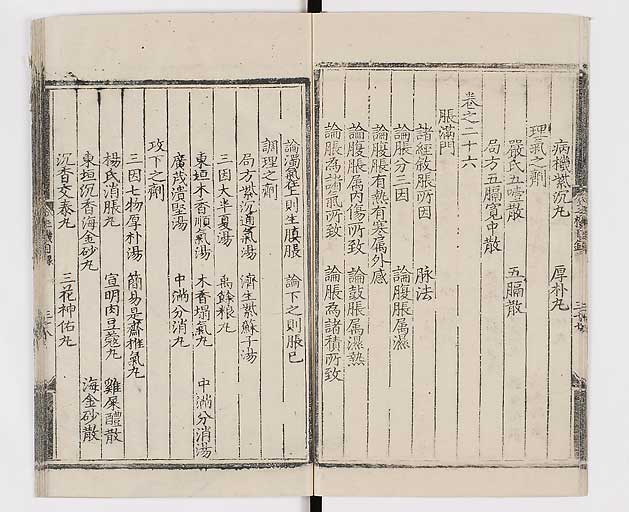 病機紫沉丸 厚朴丸
理氣之劑
嚴氏五噎散 五膈散
局方五膈寬中散
卷之二十六
脹滿門
諸經敘脹所因 脉法
論脹分三因 論腹脹属濕
論腹脹有熱有寒属外感
論腹脹属内傷所致 論鼓脹属濕熱
論脹為諸氣所致 論脹為諸積所致
論濁氣在上則生䐜脹 論下之則脹已
調理之劑
局方紫沉通氣湯 濟生紫蘇子湯
三因大半夏湯 禹餘粮丸
東垣木香順氣湯 木香塌氣丸 中滿分消湯
廣茂潰堅湯 中滿分消丸
攻下之劑
三因七物厚朴湯 簡易是齋推氣丸
楊氏消脹丸 宣明肉豆蔻丸 雞屎醴散
東垣沉香海金砂丸 海金砂散
沉香交泰丸 三花神佑丸